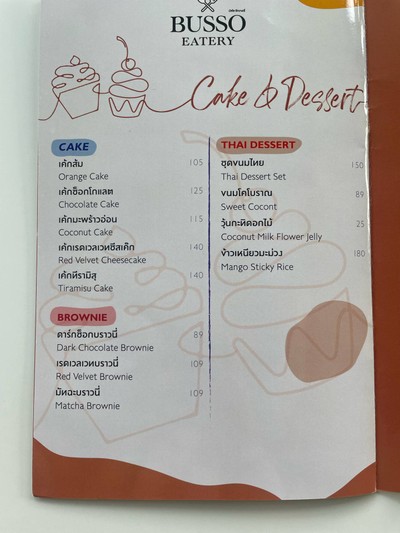 BUSSO
EATERY
Cake & Dessert
CAKE
เค้กส้ม 105
Orange Cake
เค้กช็อกโกแลต 125
Chocolate Cake
เค้กมะพร้าวอ่อน 115
Coconut Cake
เค้กเรดเวลเวทชีสเค้ก 140
Red Velvet Cheesecake
เค้กทีรามิสุ 140
Tiramisu Cake
BROWNIE
ดาร์กช็อกบราวนี่ 89
Dark Chocolate Brownie
เรดเวลเวทบราวนี่ 109
Red Velvet Brownie
มัทฉะบราวนี่ 109
Matcha Brownie
THAI DESSERT
ชุดขนมไทย 150
Thai Dessert Set
ขนมโคโบราณ 89
Sweet Cocont
วุ้นกะทิดอกไม้ 25
Coconut Milk Flower Jelly
ข้าวเหนียวมะม่วง 180
Mango Sticky Rice